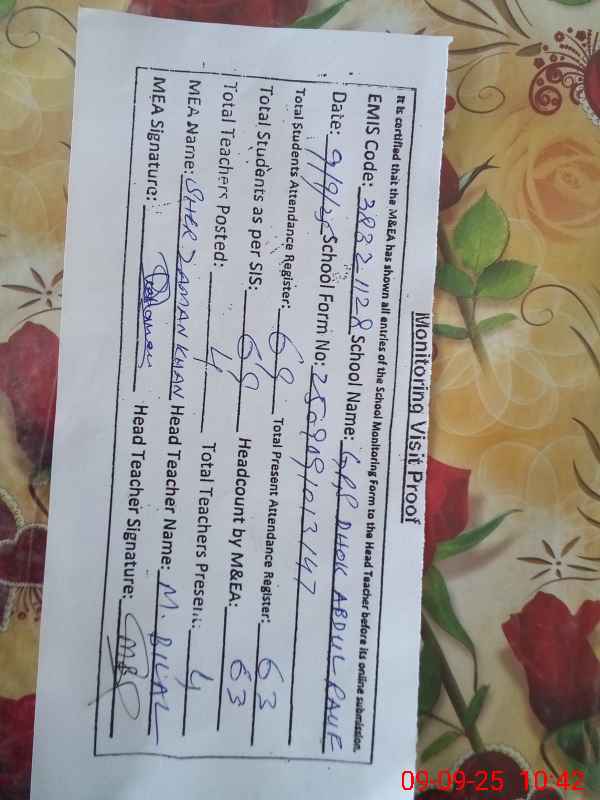 Monitoring Visit Proof
It is certified that the M&EA has shown all entries of the School Monitoring Form to the Head Teacher before its online submission.
EMIS Code: 38321128 School Name: GPS DHOK ABDUL RAUF
Date: 9/9/25 School Form No: 2509091013147
Total Students Attendance Register: 69 Total Present Attendance Register: 63
Total Students as per SIS: 69 Headcount by M&EA: 63
Total Teachers Posted: 4 Total Teachers Present: 4
MEA Name: SHER ZAMAN KHAN Head Teacher Name: M. BILAL
MEA Signature: Head Teacher Signature:
09-09-25 10:42